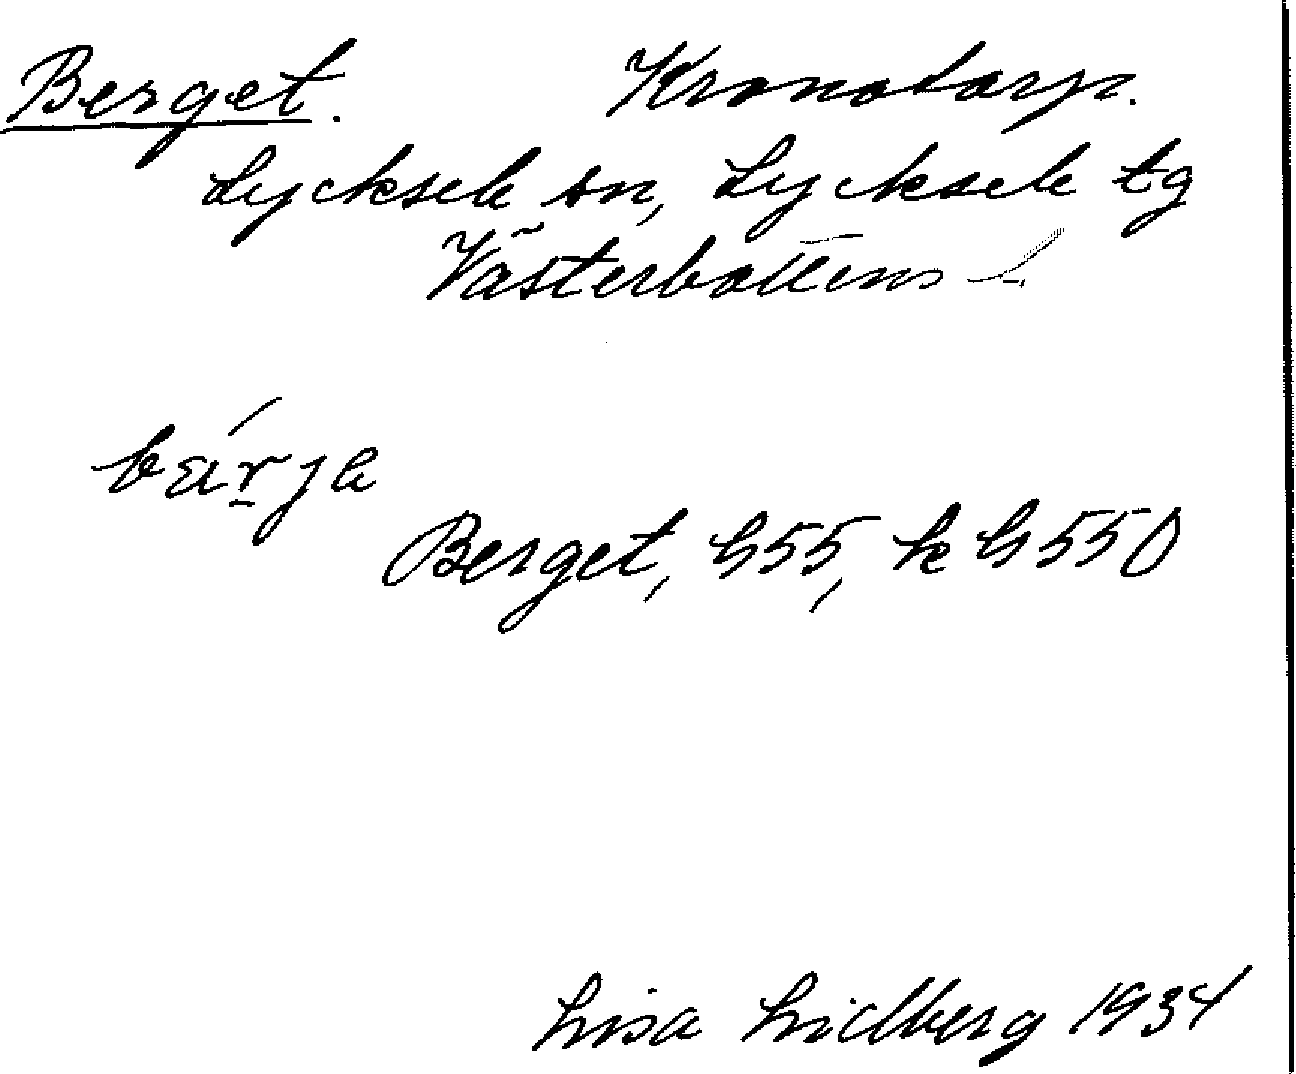 Berget. Kronotorp.
Lycksele sn, Lycksele tg
Västerbottens l.
Berget, h55, k h550
Lisa Lidberg 1934